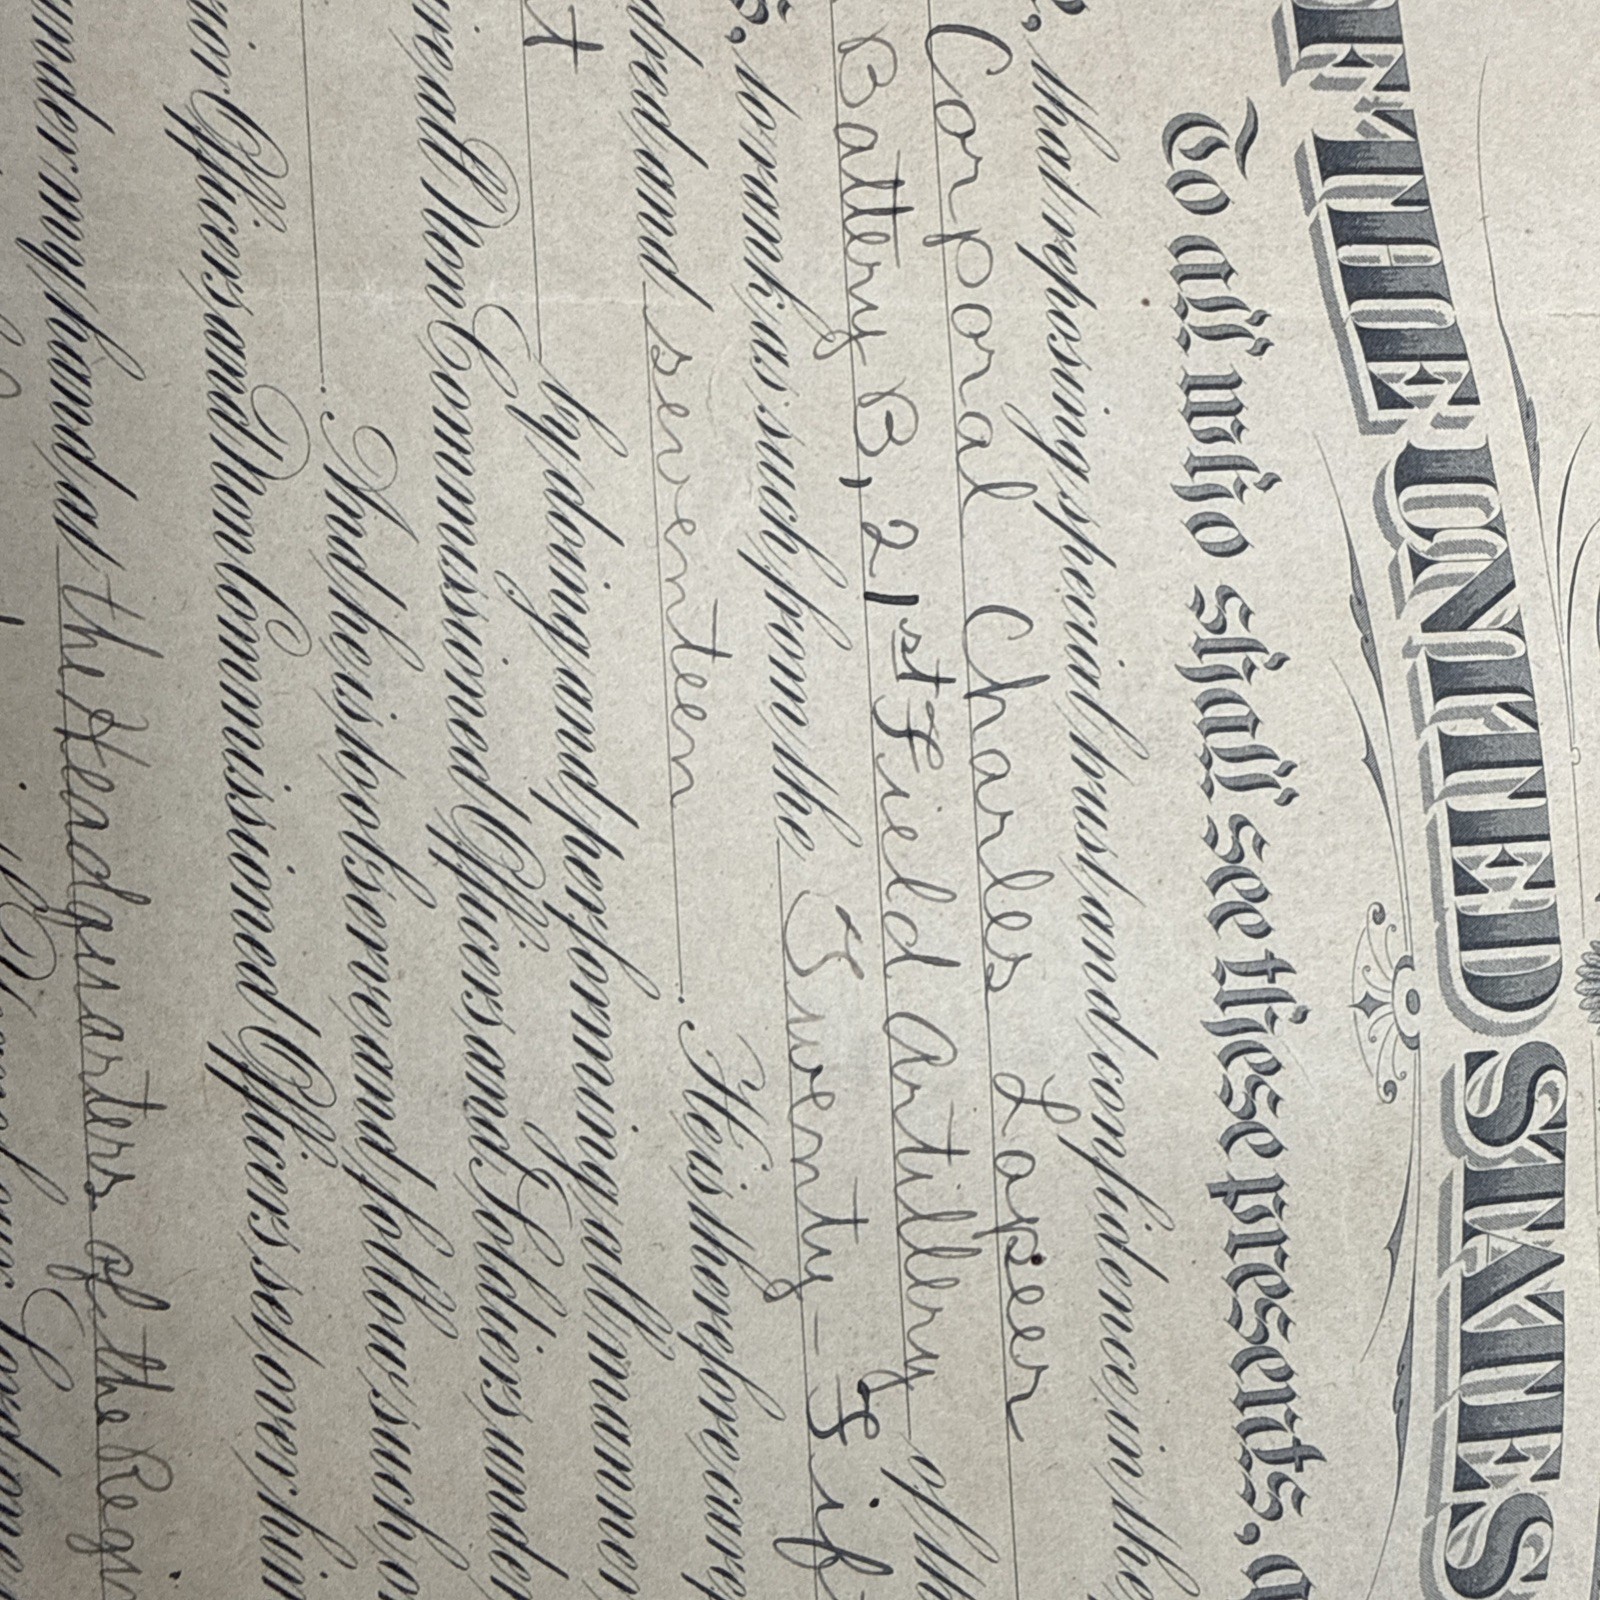 OF THE UNITED STATES
To all who shall see these presents,
that reposing special trust and confidence in the
Corporal Charles Lapser
Battery B, 21st Field Artillery of th
to rank as such from the Twenty-fif
dred and seventeen. He is therefore care
t by doing and performing all manner
ire all Non Commissioned Officers and Soldiers under
And he is to observe and follow such o
ior Officers and Non Commissioned Officers set over him
under my hand at the Headquarters of the Regi